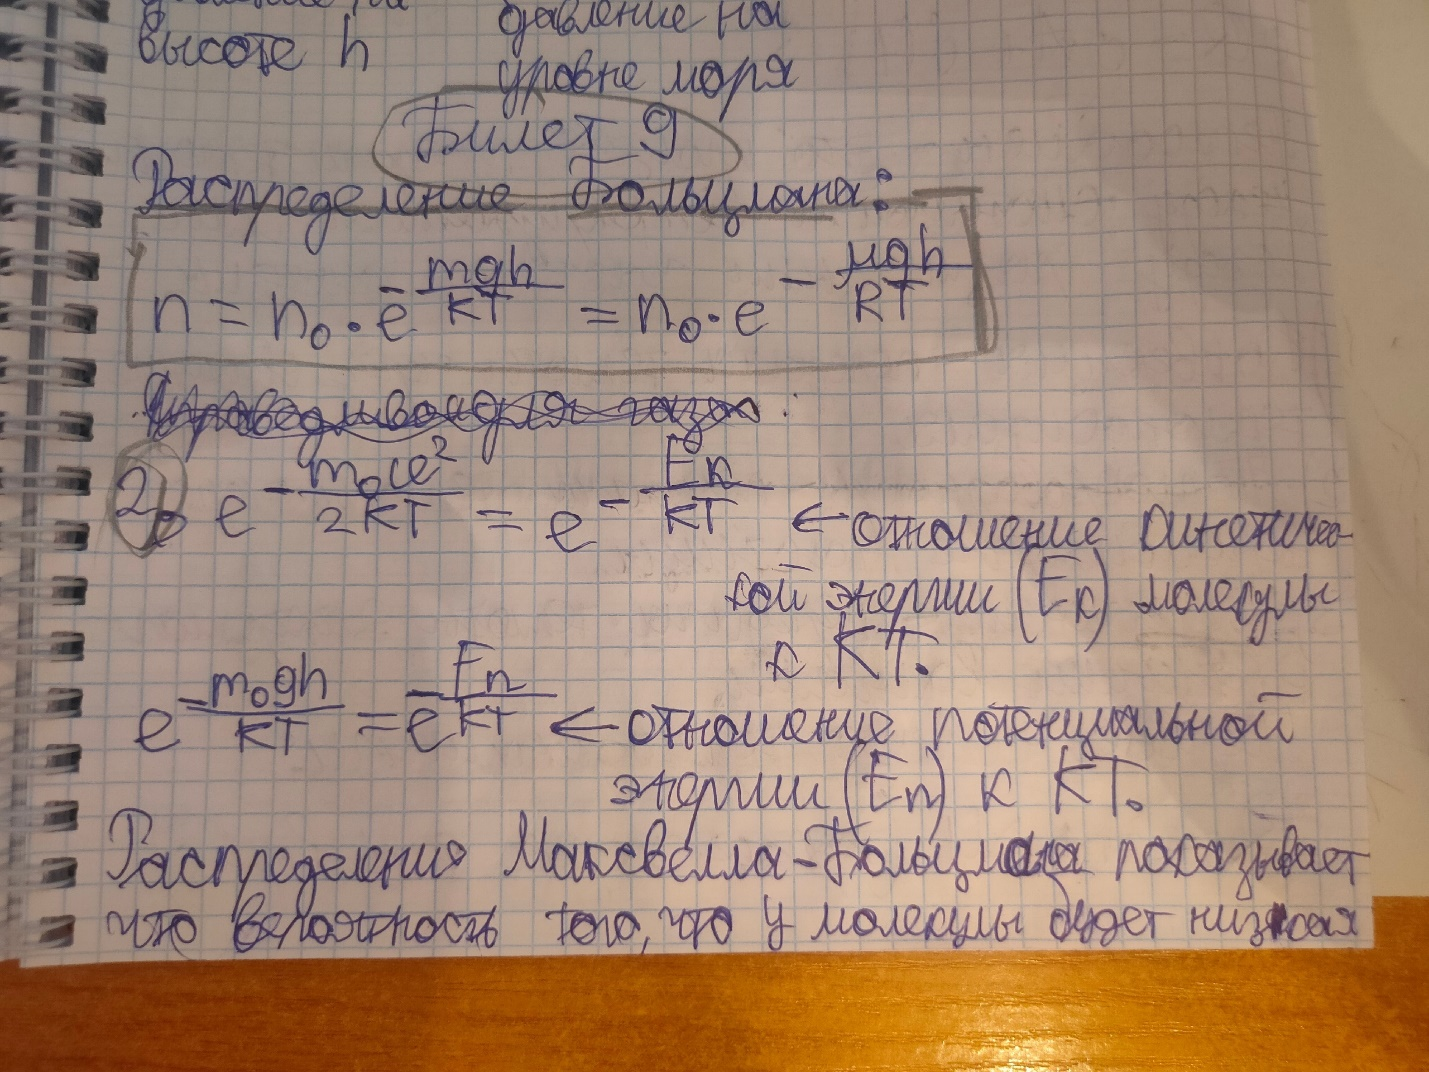 давление на
высоте h
уровне моря
Билет 9
Распределение Больцмана:
n = n₀ · e^(-mgh/kT) = n₀ · e^(-μgh/RT)
2) e^(-m₀ve²/2kT) = e^(-Eк/kT) ← отношение кинетичес-
кой энергии (Eк) молекулы
к KT.
e^(-m₀gh/kT) = e^(-Eп/kT) ← отношение потенциальной
энергии (Eп) к KT.
Распределения Максвелла-Больцмана показывает
что вероятность того, что у молекулы будет низкая